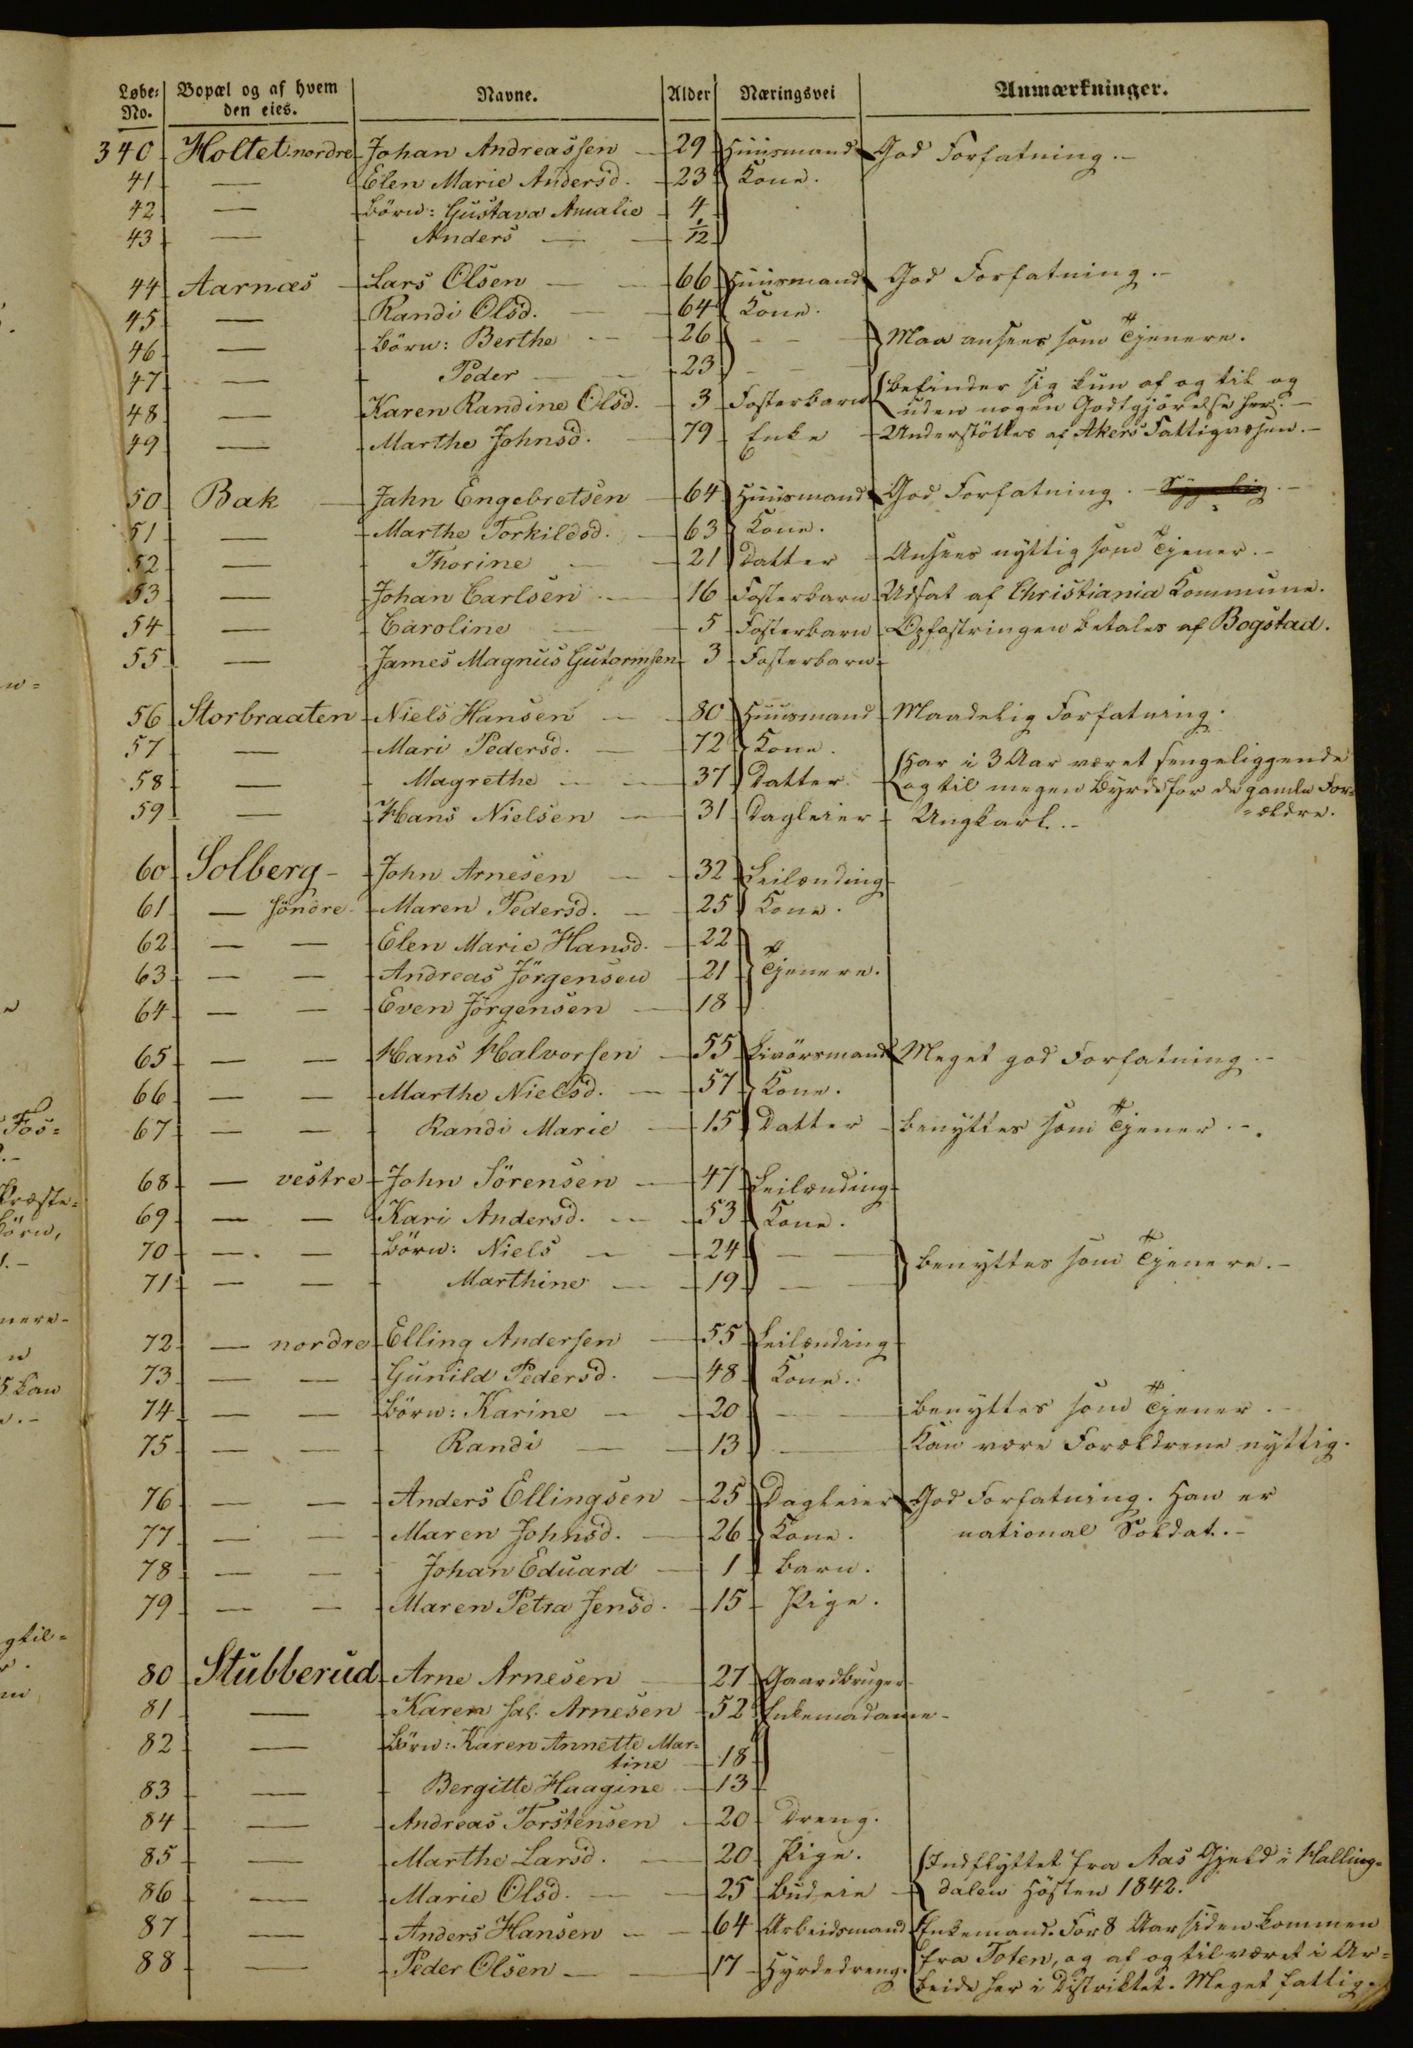 Løbe- No. Bopæl og af hvem den eies. Navne. Alder Næringsvei Anmærkninger.
340 Holtet nordre Johan Andreassen 29 Huusmand God Forfatning.
41 — Elen Marie Andersd. 23 Kone.
42 — Börn: Gustava Amalie 4
43 — Anders — 1/12
44 Aarnæs Lars Olsen — 66 Huusmand God Forfatning.
45 — Randi Olsd. — 64 Kone.
46 — Börn: Berthe — 26 — Maa ansees som Tjenere.
47 — Peder — 23 —
48 — Karen Randine Olsd. 3 Fosterbarn befinder sig kun af og til og
uden nogen Godtgjörelse her.
49 — Marthe Johnsd. 79 Enke Understöttes af Akers Fattigvæsen.
50 Bak Jahn Engebretsen 64 Huusmand God Forfatning.
51 — Marthe Torkildsd. 63 Kone.
52 — Thorine — 21 Datter Ansees nyttig som Tjener.
53 — Johan Carlsen 16 Fosterbarn Udsat af Christiania Kommune.
54 — Caroline — 5 Fosterbarn Opfostringen betales af Bogstad.
55 — James Magnus Gutormsen 3 Fosterbarn
56 Storbraaten Niels Hansen — 80 Huusmand Maadelig Forfatning.
57 — Mari Pedersd. — 72 Kone.
58 — Magrethe — 37 Datter Har i 3 Aar været sengeliggende
og til megen Byrde for de gamle For-
59 — Hans Nielsen — 31 Dagleier Ungkarl. -ældre.
60 Solberg John Arnesen — 32 Leilænding
61 — söndre Maren Pedersd. — 25 Kone.
62 — — Elen Marie Hansd. 22
63 — — Andreas Jörgensen 21 Tjenere.
64 — — Even Jörgensen 18
65 — — Hans Halvorsen 55 Livörsmand Meget god Forfatning.
66 — — Marthe Nielsd. — 57 Kone.
67 — — Randi Marie 15 Datter benyttes som Tjener.
68 — vestre John Sörensen — 47 Leilænding
69 — — Kari Andersd. — 53 Kone.
70 — — Börn: Niels — 24 — benyttes som Tjenere.
71 — — Marthine — 19 —
72 — nordre Elling Andersen — 55 Leilænding
73 — — Gunild Pedersd. 48 Kone.
74 — — Börn: Karine — 20 — benyttes som Tjener.
75 — — Randi — 13 — Kan være Forældrene nyttig.
76 — — Anders Ellingsen 25 Dagleier God Forfatning. Han er
77 — — Maren Johnsd. — 26 Kone. national Soldat.
78 — — Johan Eduard — 1 barn.
79 — — Maren Petra Jensd. 15 Pige.
80 Stubberud Arne Arnesen — 27 Gaardbruger
81 — Karen sal. Arnesen 52 Enkemadame
82 — Börn: Karen Annette Mar-
tine 18
83 — Bergitte Haagine 13
84 — Andreas Torstensen 20 Dreng.
85 — Marthe Larsd. — 20 Pige. Indflyttet fra Aas Gjeld i Halling-
86 — Marie Olsd. — 25 Budeie dalen Hösten 1842.
87 — Anders Hansen — 64 Arbeidsmand Enkemand. For 8 Aar siden kommen
88 — Peder Olsen — 17 Hyrdedreng. fra Toten, og af og til været i Ar-
beide her i Distriktet. Meget fattig.